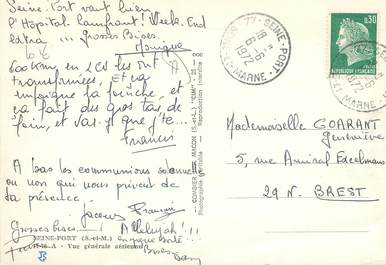 Seine-Port vaut bien
l'Hôpital Lanfrant! Week-End
extra ... grosses Bises.
Monique
600 km, en 2cv les ont
transformés, et ça
empoigne la fourche, et
ça fait des gros tas de
foin, et vas-y que j'te...
Francis
A bas les communions solennelles
ou non qui nous privent de
ta présence.
Jacques Francis
Grosses bises! Allelujah!!
SEINE-PORT (S.-et-M.)
Vue générale aérienne
Bises
COMBIER IMP. MACON (S.-et-L.) "CIM"
Photographie véritable - Reproduction interdite
77 - SEINE-PORT
18 H
6-6
1972
SEINE-ET-MARNE
0,30
REPUBLIQUE FRANÇAISE
Mademoiselle GOARANT
Geneviève
5, rue Amiral Exelmans
29 N. BREST